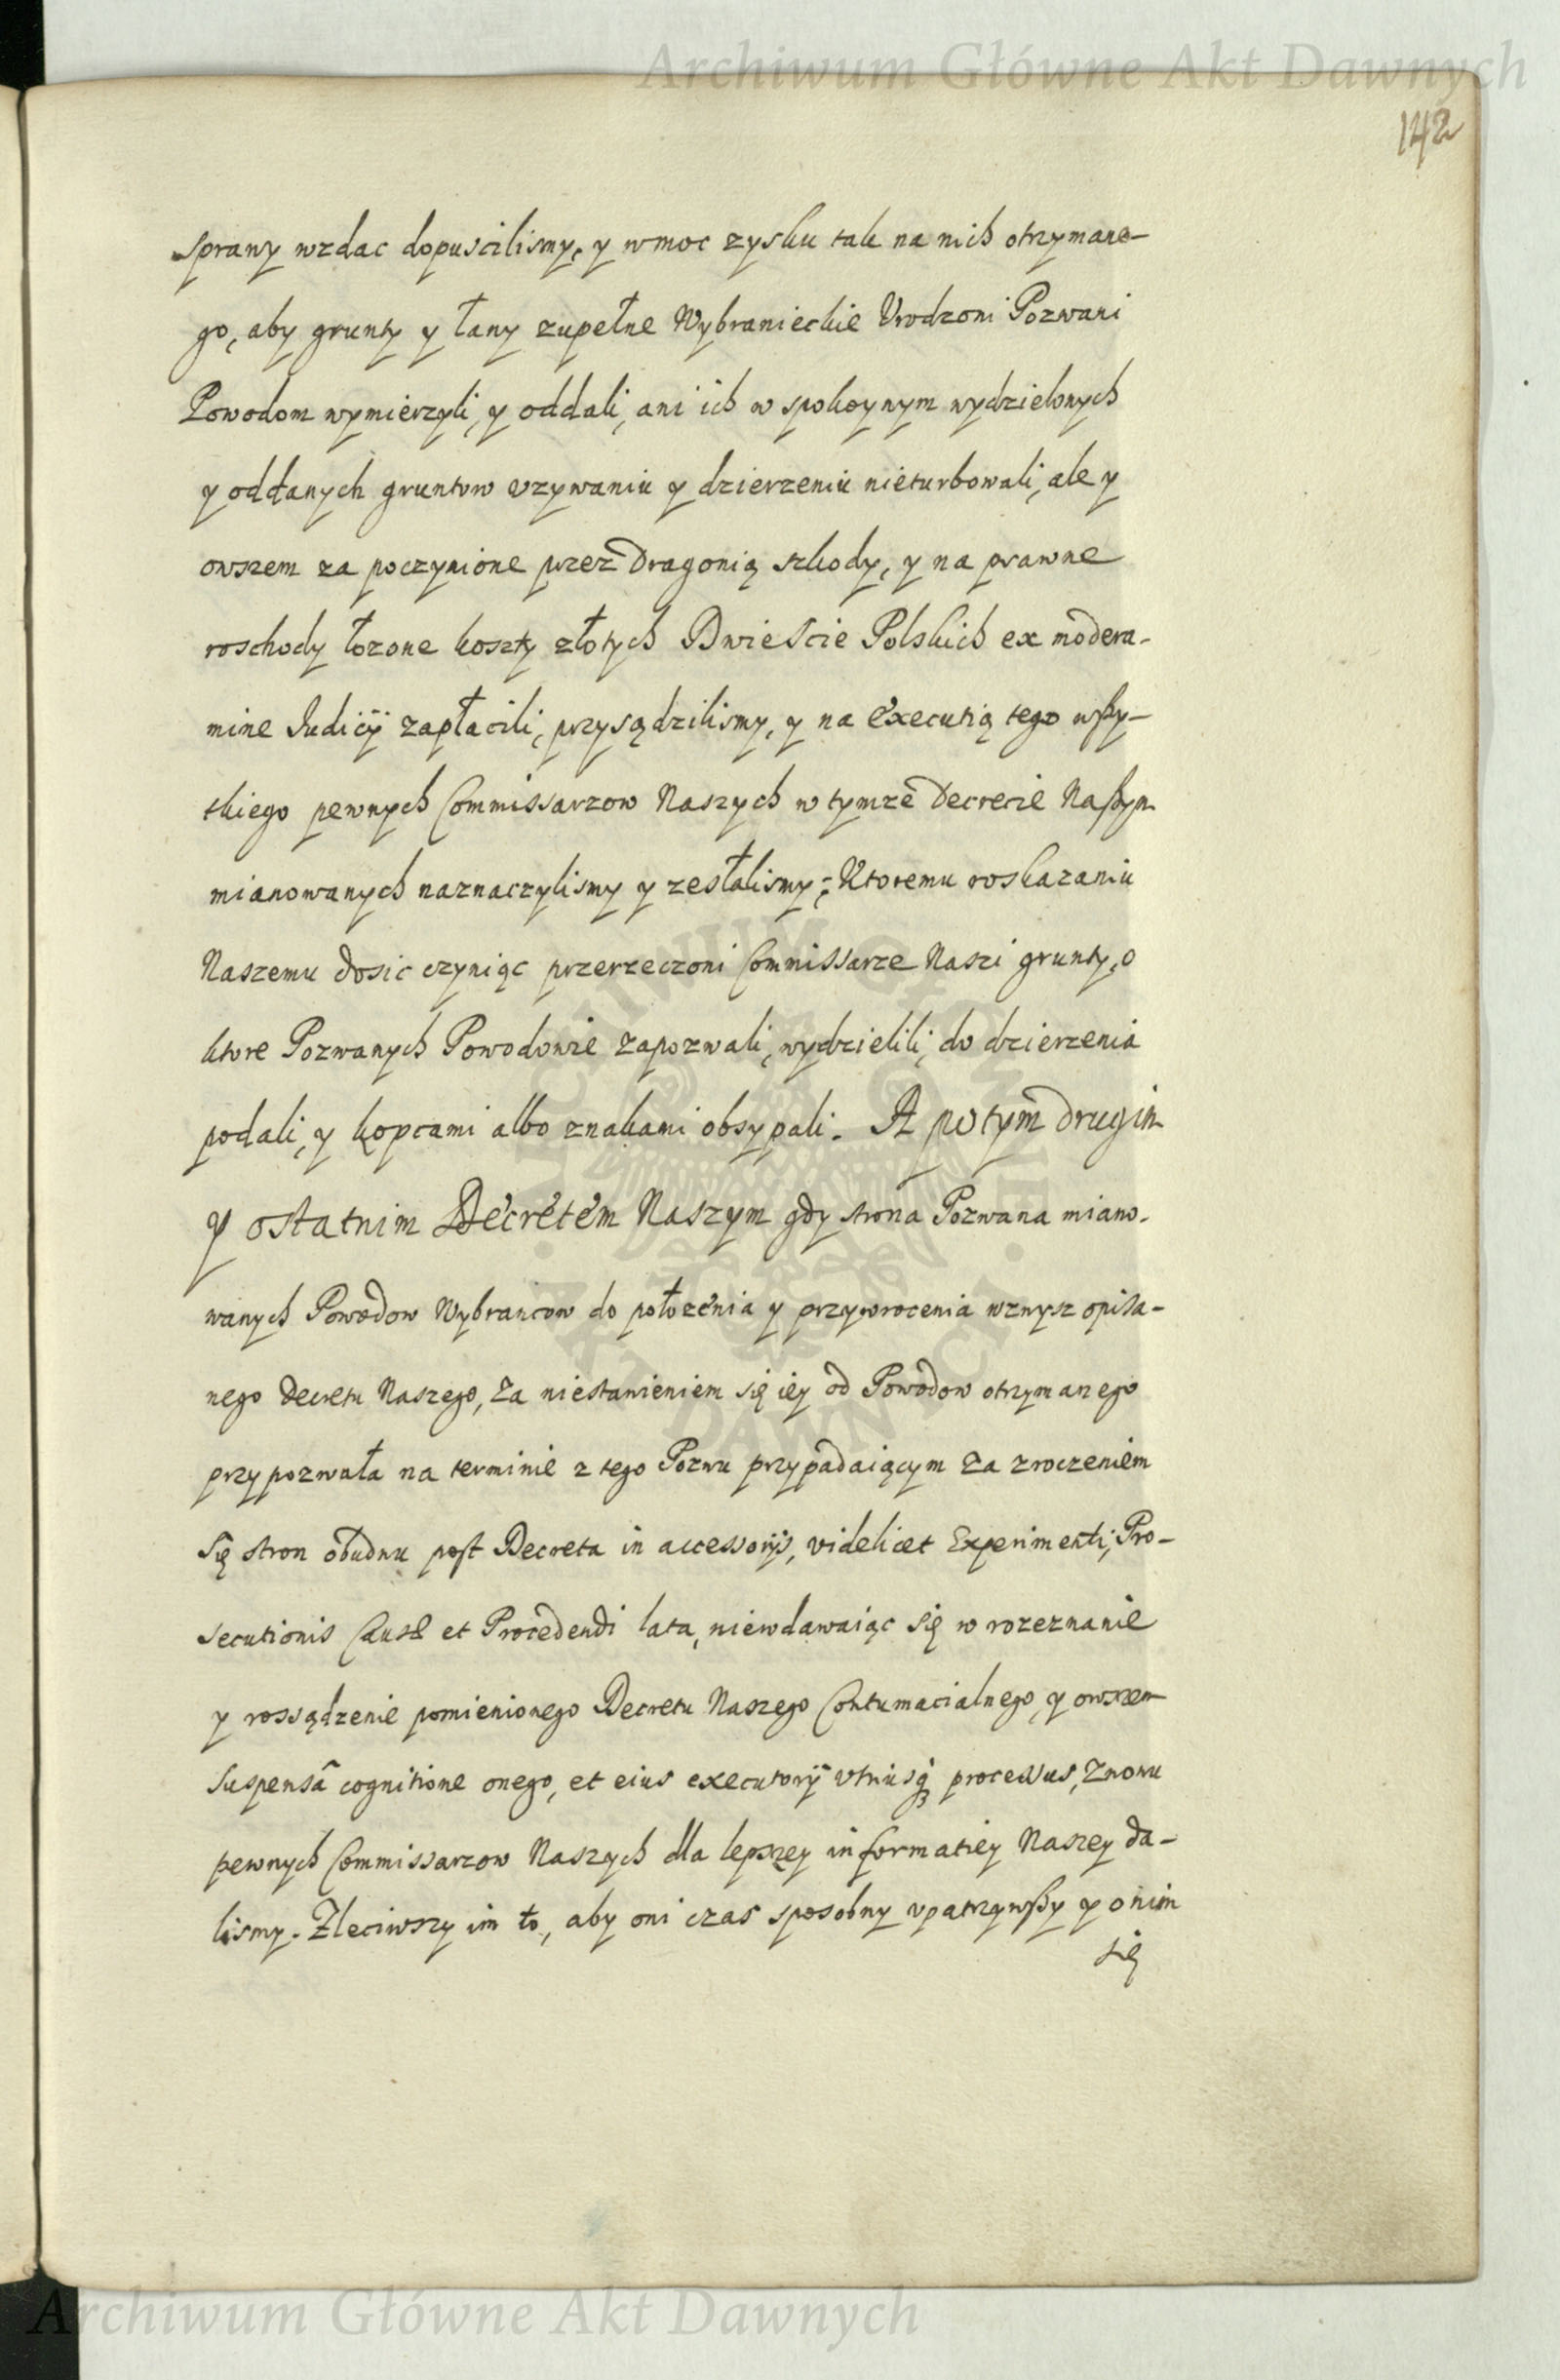 Archiwum Główne Akt Dawnych
142
sprawy wzdac dopuscilismy, y wmoc zysku tak na nich otrzymane-
go, aby grunty y łany zupełne Wybranieckie Vrodzoni Pozwani
Powodom wymierzyli, y oddali, ani ich w spokoynym wydzielonych
y oddanych gruntow vzywaniu y dzierzeniu nieturbowali, ale y
owszem za poczynione przez Dragonią szkody, y na prawne
roschody łozone koszty złotych Dwiescie Polskich ex modera-
mine Iudicij zapłacili, przysądzilismy, y na executią tego wszy-
tkiego pewnych Commissarzow Naszych w tymze Decrecie Naszym
mianowanych naznaczylismy y zesłalismy; Ktoremu roskazaniu
Naszemu dosic czyniąc przerzeczoni Commissarze Naszi grunty, o
ktore Pozwanych Powodowie zapozwali, wydzielili, do dzierzenia
podali, y kopcami albo znakami obsypali. A potym drugim
y ostatnim Decretem Naszym gdy strona Pozwana miano-
wanych Powodow Wybrancow do połozenia y przywrocenia wznysz opisa-
nego Decretu Naszego, za niestanieniem się iey od Powodow otrzymanego
przypozwała na terminie z tego Pozwu przypadaiącym za zroczeniem
się stron obudwu post Decreta in accessorijs, videlicet Experimenti, Pro-
secutionis Causæ et Procedendi lata, niewdawaiąc się w rozeznanie
y rossądzenie pomienionego Decretu Naszego Contumacialnego, y owszem
Suspensâ cognitione onego, et eius executorij vtriusq3 processus, Znowu
pewnych Commissarzow Naszych dla lepszey informatiey Naszey da-
lismy. Zleciwszy im to, aby oni czas sposobny vpatrzywszy y o nim
się
Archiwum Główne Akt Dawnych